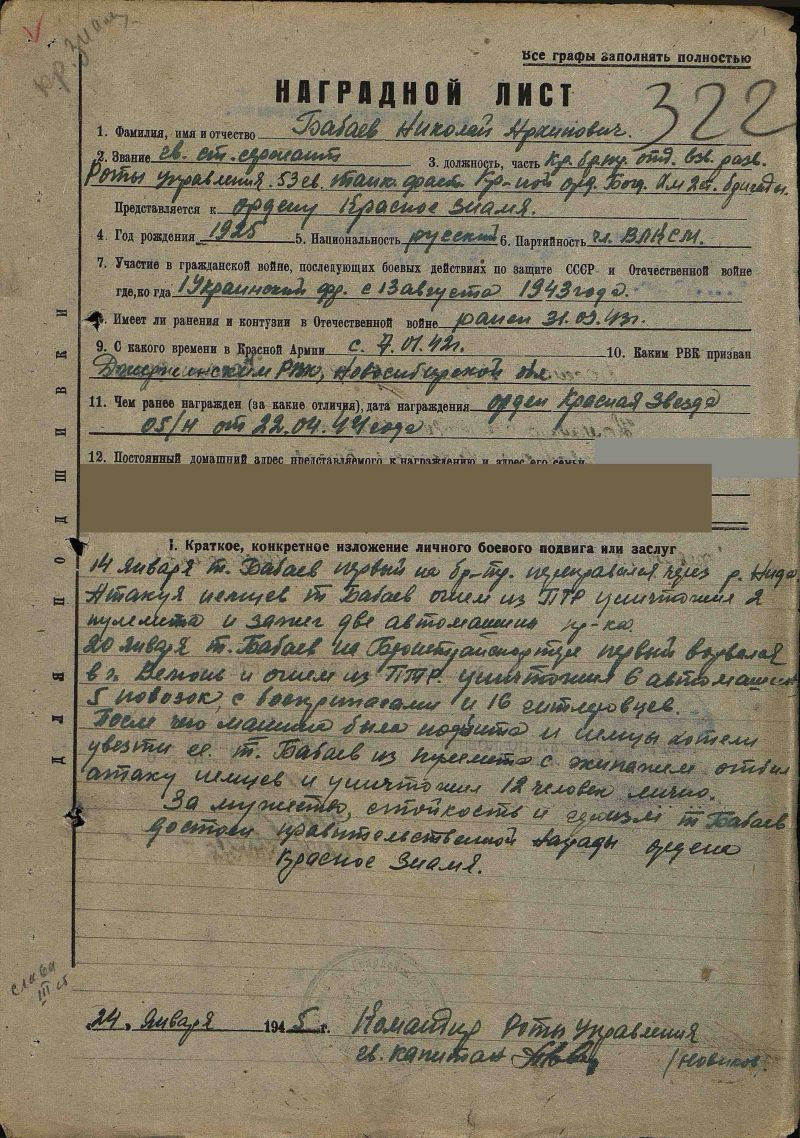 кр. знамя
Все графы заполнять полностью
НАГРАДНОЙ ЛИСТ
322
1. Фамилия, имя и отчество Бабаев Николай Архипович.
2. Звание гв. ст. сержант 3. должность, часть Ком. отд. взв. разв.
Роты управления 53 гв. танк. Фаст. Кр-ной орд. Бог. Хм 2 ст. бригады.
Представляется к ордену Красное Знамя.
4. Год рождения 1925 5. Национальность русский 6. Партийность чл. ВЛКСМ.
7. Участие в гражданской войне, последующих боевых действиях по защите СССР и Отечественной войне
где, ко гда 1 Украинский фр. с 13 августа 1943 года.
8. Имеет ли ранения и контузии в Отечественной войне ранен 31.03.43г.
9. С какого времени в Красной Армии с 7.01.42г. 10. Каким РВК призван
Дзержинским РВК, Новосибирской обл.
11. Чем ранее награжден (за какие отличия), дата награждения орден Красная Звезда
05/н от 22.04.44 года
12. Постоянный домашний адрес представляемого к награждению и адрес его семьи
I. Краткое, конкретное изложение личного боевого подвига или заслуг
14 января т. Бабаев первый на бр-тр. переправился через р. Нида
Атакуя немцев т. Бабаев огнем из ПТР уничтожил 2
пулемета и зажег две автомашины пр-ка.
20 января т. Бабаев на Бронетранспортере первый ворвался
в г. Велюнь и огнем из ПТР. уничтожил 6 автомашин
5 повозок с боеприпасами и 16 гитлеровцев.
После чего машина была подбита и немцы хотели
увезти ее. т. Бабаев из пулемета с экипажем отбил
атаку немцев и уничтожил 12 человек лично.
За мужество, стойкость и героизм т. Бабаев
достоин правительственной награды ордена
Красное Знамя.
слава
III ст
24 января 1945 г. Командир Роты Управления
гв. капитан /Новиков/
ДЛЯ ПОДШИВКИ